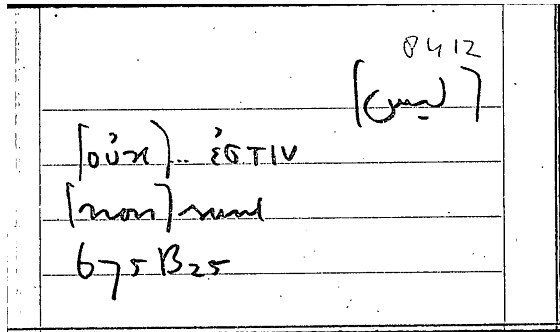 8412
[ليس]
[οὐχ)... ἐστιν
[non] sunt
675B25